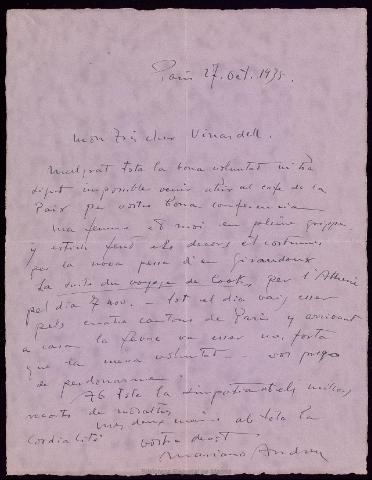 Paris 27. Oct. 1935.
Mon très cher Vinardell.
Malgrat tota la bona voluntat m'ha
sigut impossible venir ahir al cafe de la
Paix per vostra bona conferencia
Ma femme et moi en pleine grippe
y estich fent els decors et costumes
per la nova pessa d'en Giraudoux
La suite du voyage de Cook, per l'Athenée
pel dia 7 nov. - tot el dia vaig esser
pels quatre cantons de Paris y arrivant
a casa la febre va esser mes forta
que la meva voluntat - vos prego
de perdonarme.
Ab tota la simpatia els millors
records de nosaltres
mes deux mains ab tota la
cordialité vostre devot
Mariano Andreu